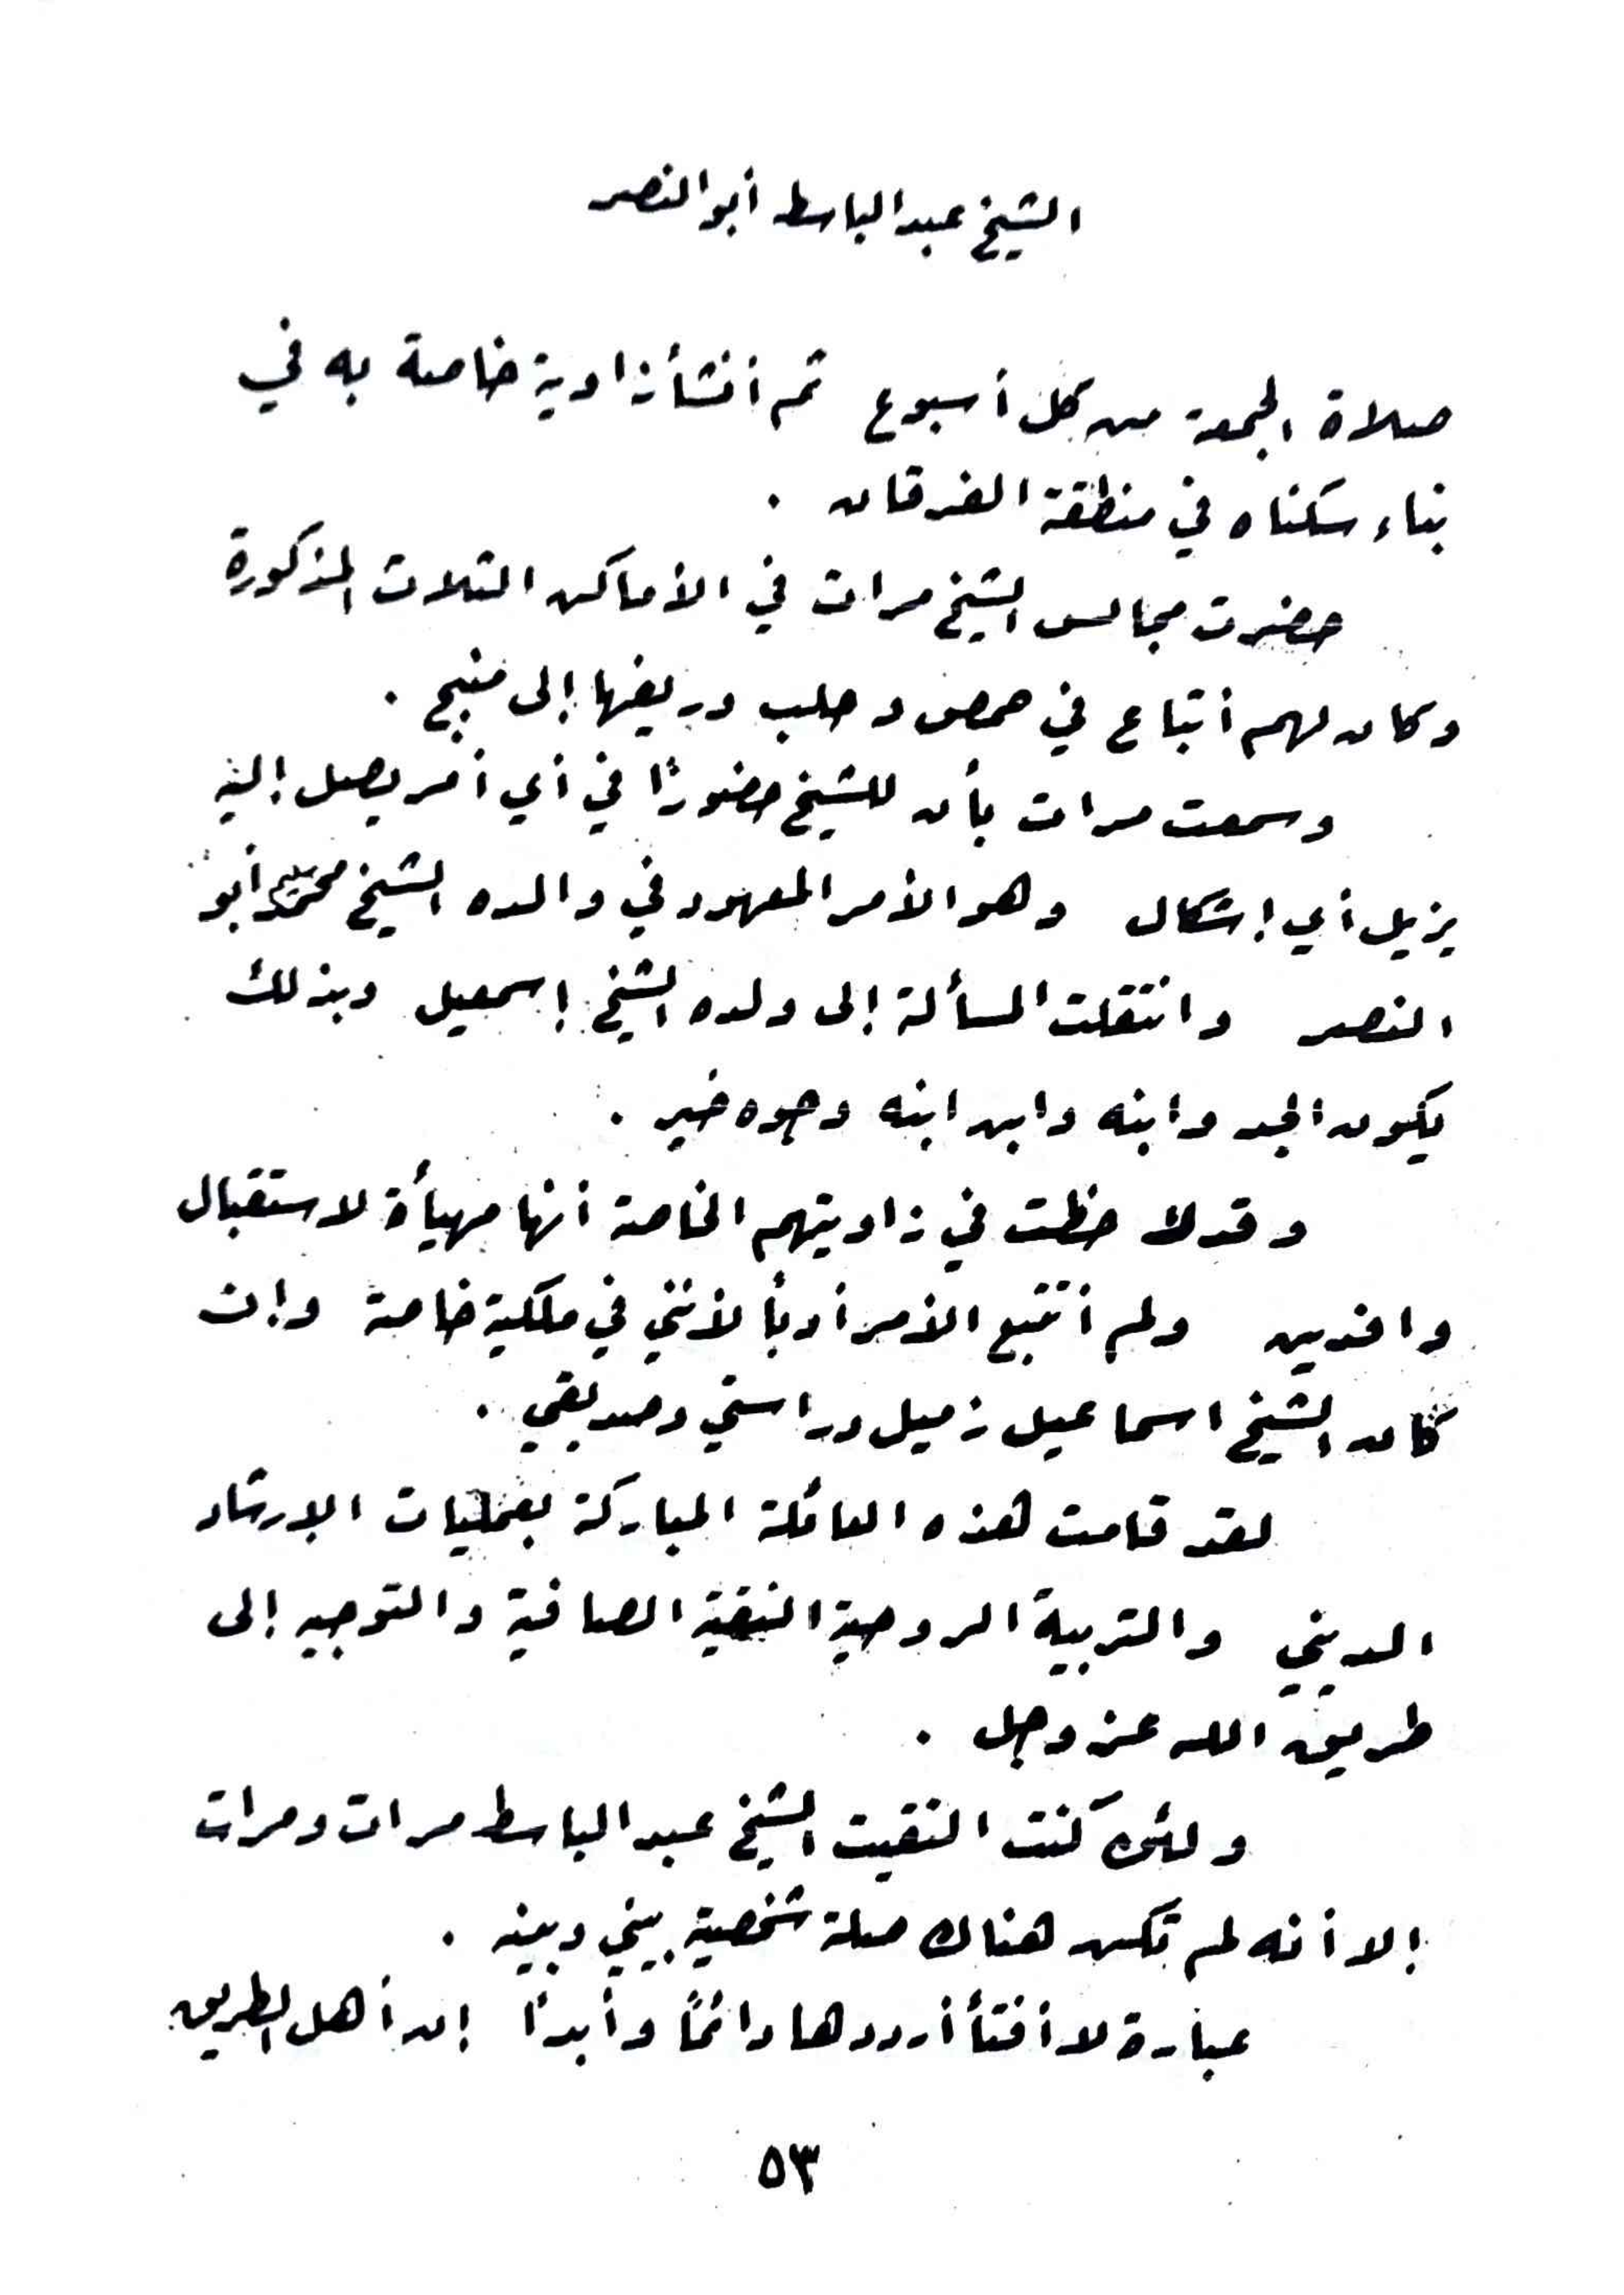 الشيخ عبد الباسط أبو النصر
صلاة الجمعة من كل أسبوع ثم أنشأ زاوية خاصة به في
بناء سكناه في منطقة الفرقان .
حضرت مجالس الشيخ مرات في الأماكن الثلاث المذكورة
وكان لهم أتباع في حمص وحلب وريفها إلى منبج .
وسمعت مرات بأن للشيخ حضورًا في أي أمر يصل إليه
يزيل أي إشكال وهو الأمر المعهود في والده الشيخ محمد أبو
النصر وانتقلت المسألة إلى ولده الشيخ إسمعيل وبذلك
يكون الجد وابنه وابن ابنه وجوه خير .
وقد لاحظت في زاويتهم الخاصة أنها مهيأة لاستقبال
وافدين ولم أتتبع الأمر أدبأ لأنني في ملكية خاصة وإن
كان الشيخ اسماعيل زميل دراستي وصديقي .
لقد قامت هذه العائلة المباركة بعمليات الإرشاد
الديني والتربية الروحية النقية الصافية والتوجيه إلى
طريق الله عز وجل .
ولئن كنت التقيت الشيخ عبد الباسط مرات ومرات
إلا أنه لم تكن هناك صلة شخصية بيني وبينه .
عبارة لا أفتأ أرددها دائمًا وأبدًا إن أهل الطريق
٥٣